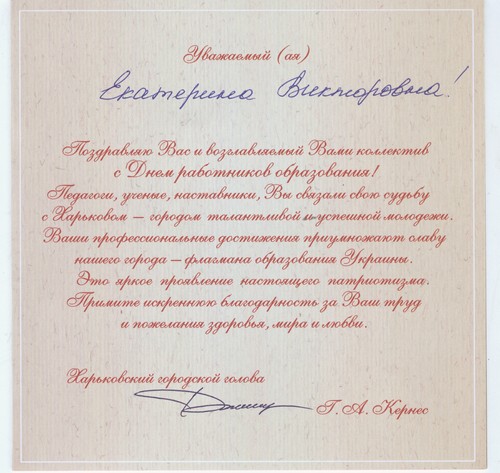 Уважаемый (ая)
Екатерина Викторовна!
Поздравляю Вас и возглавляемый Вами коллектив
с Днем работников образования!
Педагоги, ученые, наставники, Вы связали свою судьбу
с Харьковом — городом талантливой и успешной молодежи.
Ваши профессиональные достижения приумножают славу
нашего города — флагмана образования Украины.
Это яркое проявление настоящего патриотизма.
Примите искреннюю благодарность за Ваш труд
и пожелания здоровья, мира и любви.
Харьковский городской голова
Г. А. Кернес